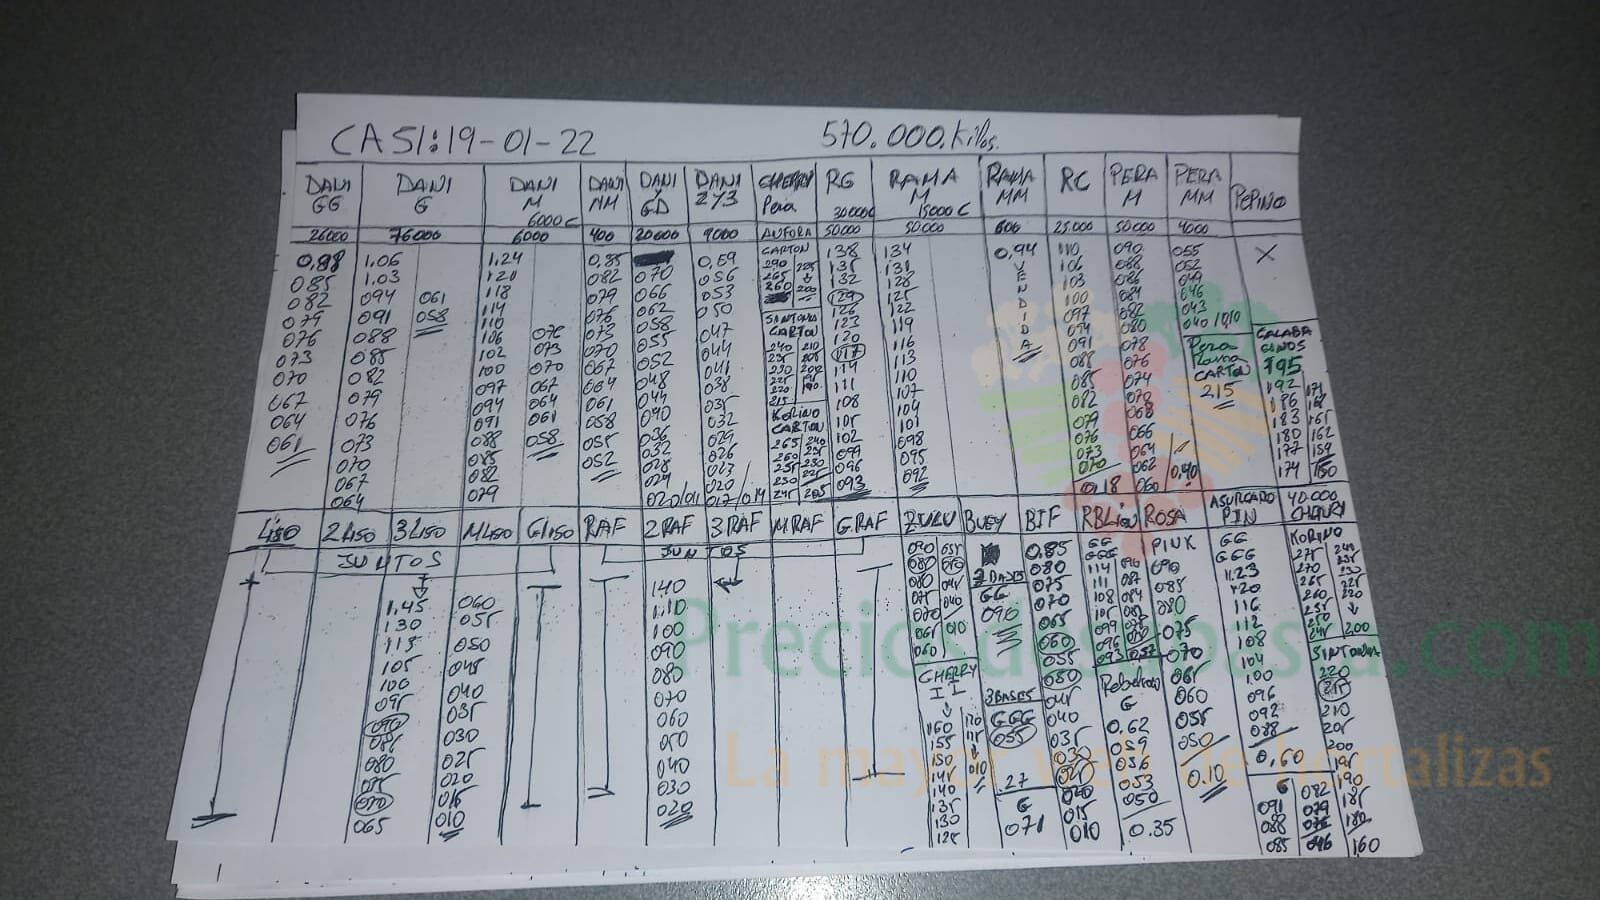 CASI: 19-01-22 570.000.Killos.
DANI GG DANI G DANI M 6000 C DANI MM DANI GD DANI 2Y3 CHERRY Pera RG 30000C RAMA M 15000 C RAMA MM RC PERA M PERA MM PEPINO
26000 76000 6000 400 20000 9000 ANFORA 50000 50.000 600 25.000 50000 4000 X
1.06 1.24 0,85 0,59 CARTON 138 134 0,94 110 090 055
085 1.03 1.20 082 070 056 290 225 135 131 VENDIDA 106 088 052
082 094 061 118 079 066 053 265 132 128 103 086 049
079 091 058 114 076 062 050 260 200 129 125 100 084 046
076 088 110 073 058 126 122 097 082 043
073 085 106 070 055 047 SINTONIA CARTON 123 119 094 080 040 10,10 CALABACINOS
070 082 102 073 067 052 044 240 210 120 116 091 078 Pera Rama CARTON 195
067 079 100 070 064 048 041 235 205 117 113 088 076 2,15 192 171
064 076 097 067 061 044 038 230 202 114 110 085 074 186 168
061 073 094 064 058 040 035 225 195 111 107 082 183 165
070 091 061 055 036 032 220 190 108 104 079 068 180 162
067 088 058 052 032 029 215 105 101 076 066 177 159
064 085 028 026 KORINO CARTON 102 098 073 064 174 150
082 024 023 265 240 099 095 070 062 0,40
079 020/011 020 260 235 096 092 0,18 060
017/014 255 230 093
230 225
245 205
LISO 2 LISO 3 LISO M LISO G LISO RAF 2 RAF 3 RAF M RAF G RAF ZULU BUEY BIF RBLION ROSA ASURCADO PIN 40.000 CHERRY
JUNTOS JUNTOS
1.45 060
130 055
115 050
105 045
100 040
095 035
090 030
085 025
080 020
075 015
070 010
065
140
1.10
100
090
080
070
060
050
040
030
020
090 055
080 050
080 045
075 040
070
065 010
060
CHERRY
II
160 120
155 115
150
145 010
140
135
130
125
2 BASES
GG
090
3 BASES
GGG
055
.27
G
071
0,85
080
075
070
065
060
055
080
045
040
035
030
020
020
015
010
GG
GGG
114 096
111 087
108 084
105 082
099
096
093 057
Rebenton
G
0,62
059
056
053
050
0.35
PINK
090
085
080
075
070
065
060
055
050
0.10
GG
GGG
1.23
120
116
112
108
104
100
096
092
088
0,60
G 082
091 079
088 076
085 046
KORINO
275 240
270 235
265 230
260 225
255 220
250
245 200
SINTONIA
220
215
210
205
200
195
190
185
180
160
Preciosdesubasta.com
La mayor web de hortalizas